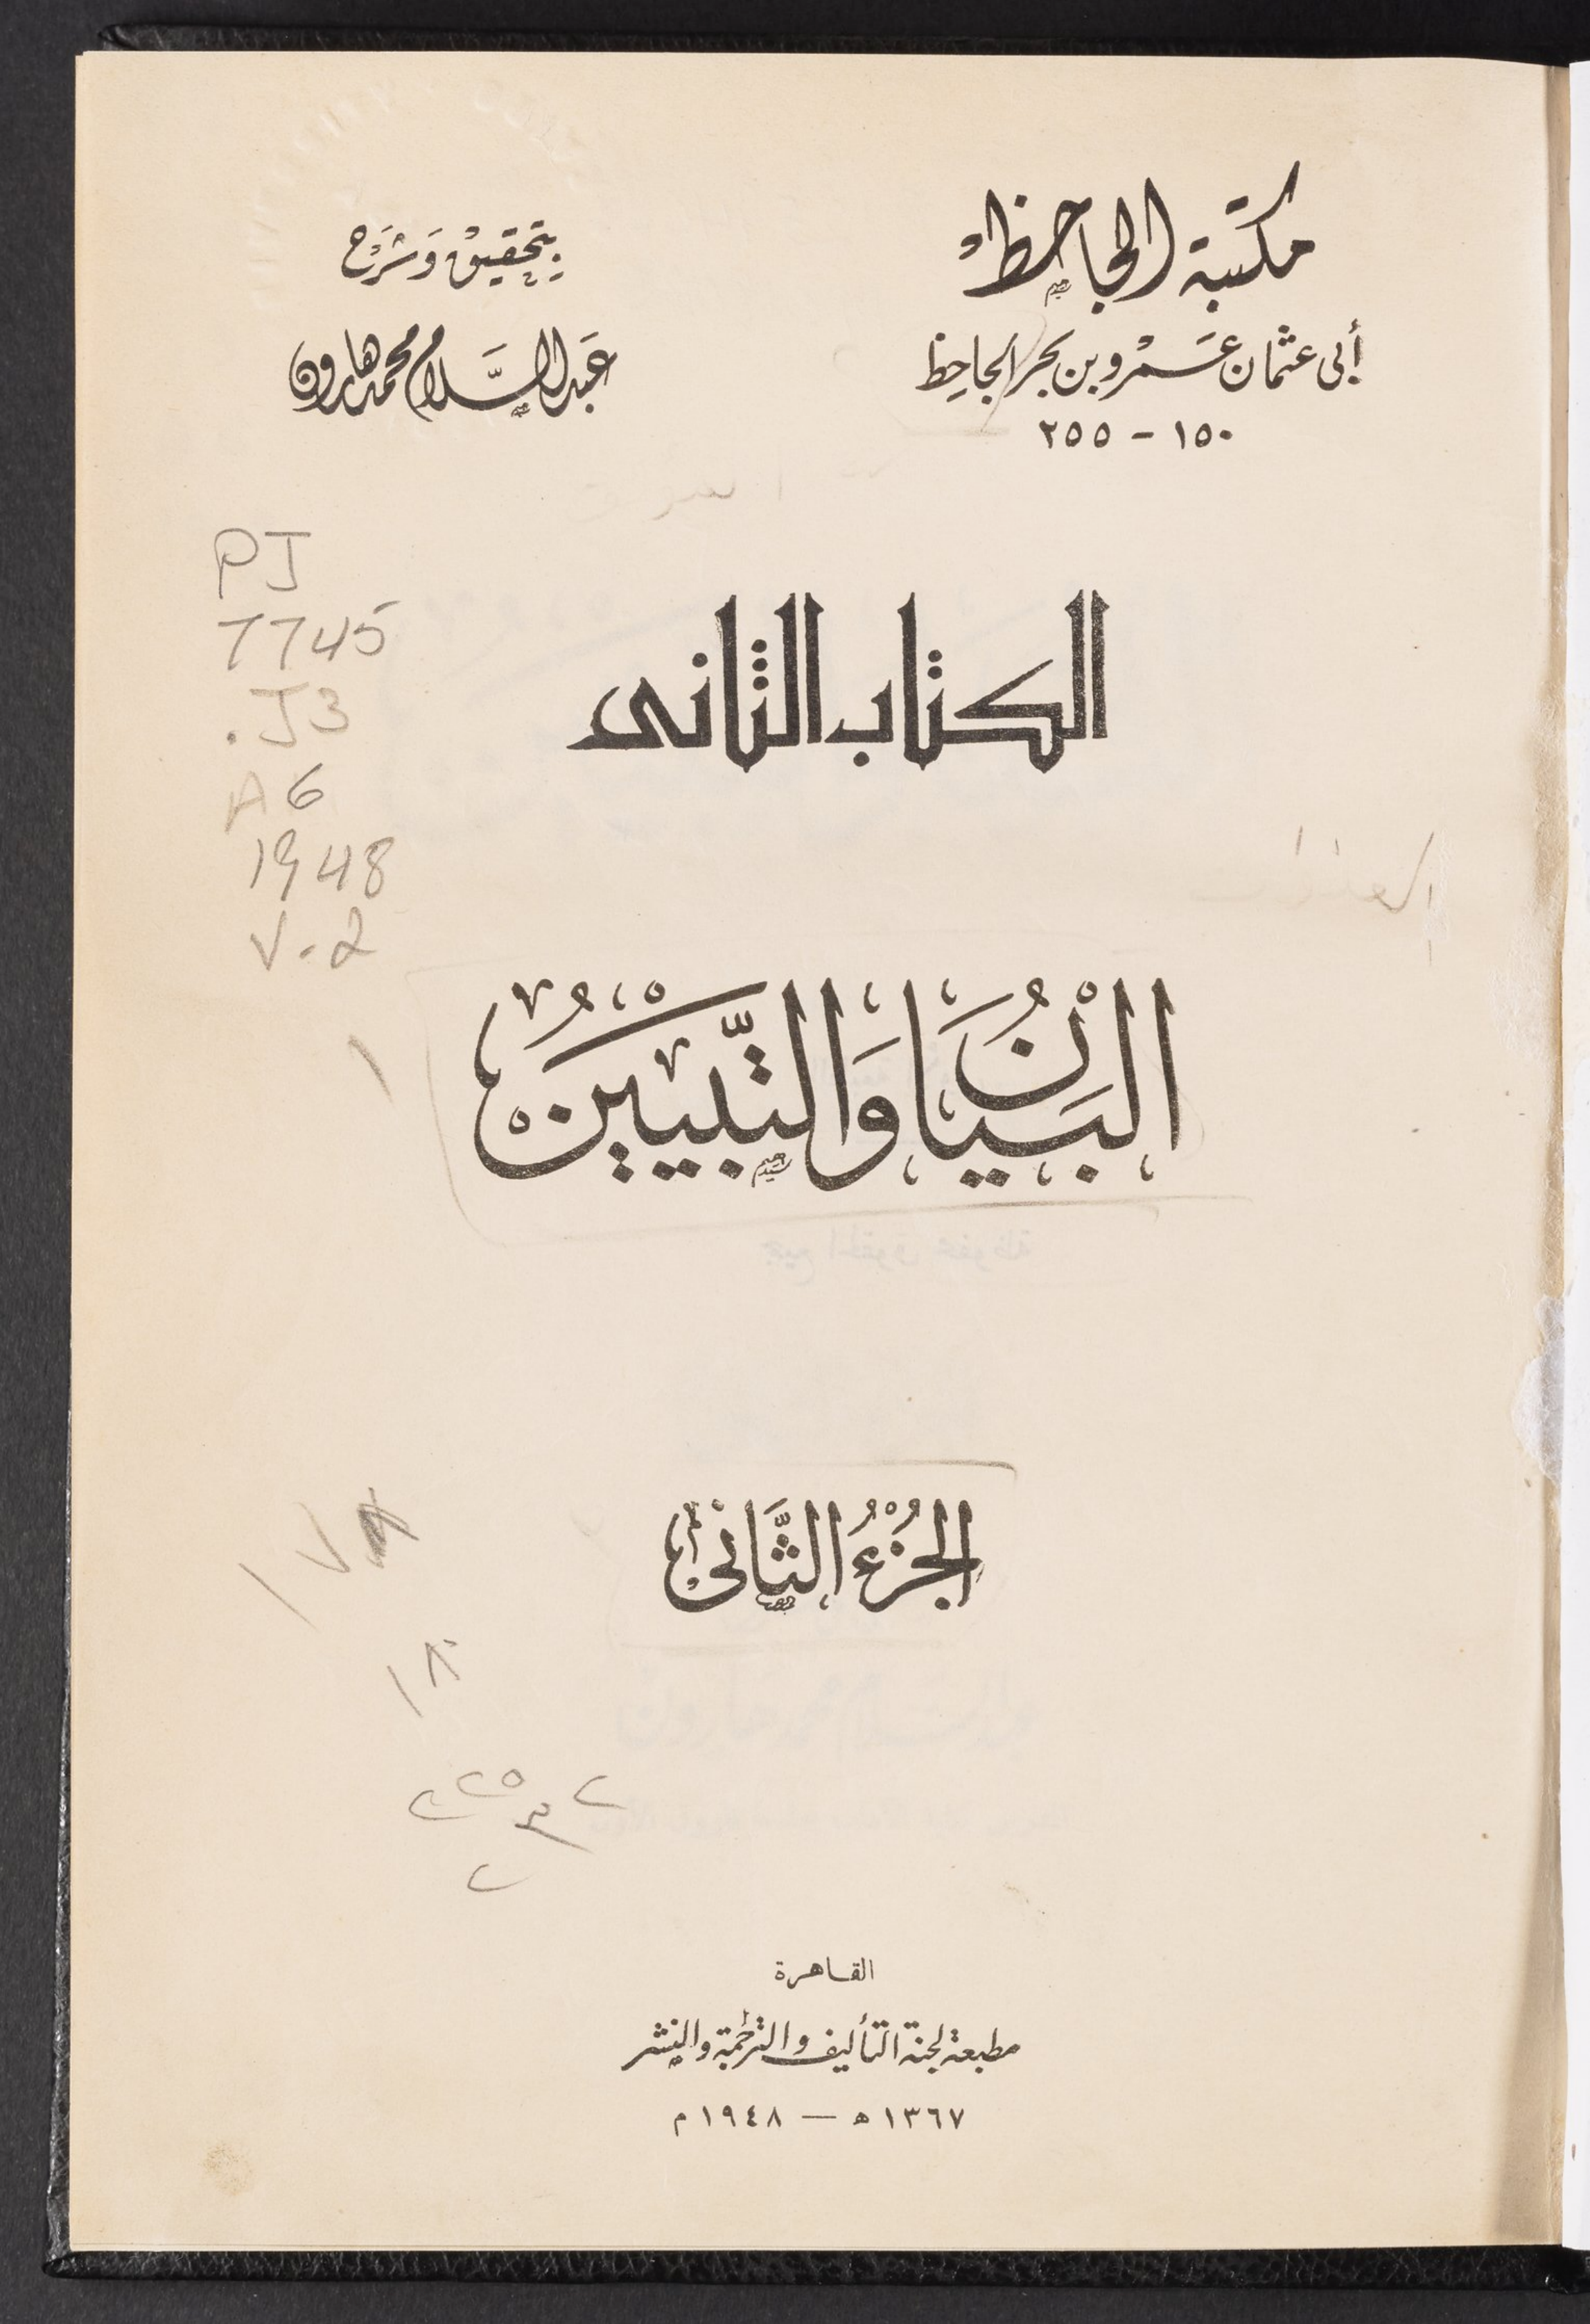 مكتبة الجاحظ
أبى عثمان عَمْرو بن بحر الجاحِظ
١٥٠ - ٢٥٥
بِتحقيق وَشَرْح
عَبد السَّلام محمد هارون
PJ
7745
.J3
A6
1948
V.2
الكتاب الثانى
البَيَانُ وَالتَّبْيِينُ
١
الجُزْءُ الثَّانى
القاهرة
مطبعة لجنة التأليف والترجمة والنشر
١٣٦٧ ه — ١٩٤٨ م